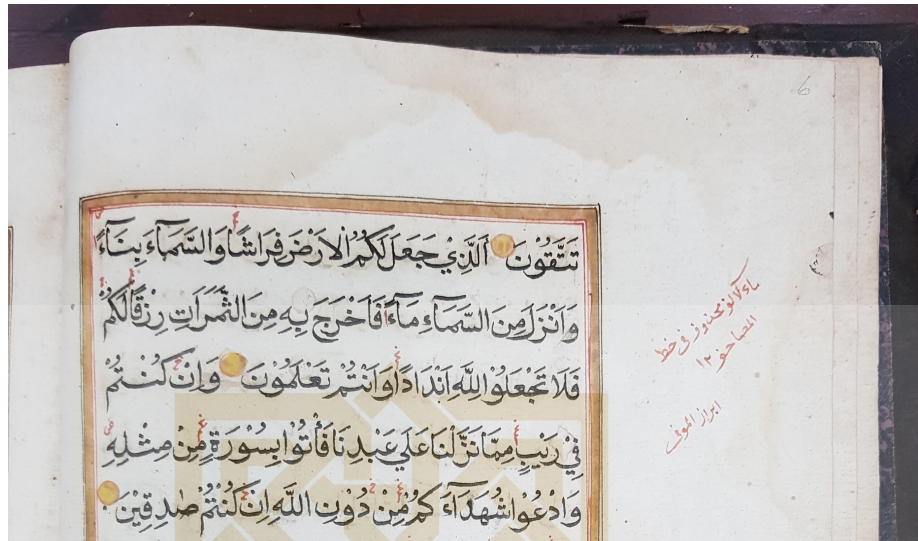 تَتَّقُوْنَ اَلَّذِيْ جَعَلَ لَكُمُ الْاَرْضَ فِرَاشًا وَالسَّمَآءَ بِنَآءً
وَاَنْزَلَ مِنَ السَّمَآءِ مَآءً فَاَخْرَجَ بِهِ مِنَ الثَّمَرَاتِ رِزْقًا لَكُمْ
فَلَا تَجْعَلُوْا لِلّٰهِ اَنْدَادًا وَاَنْتُمْ تَعْلَمُوْنَ وَاِنْ كُنْتُمْ
فِيْ رَيْبٍ مِمَّا نَزَّلْنَا عَلَي عَبْدِنَا فَأْتُوْا بِسُوْرَةٍ مِنْ مِثْلِهِ
وَادْعُوْا شُهَدَآءَكُمْ مِنْ دُوْنِ اللّٰهِ اِنْ كُنْتُمْ صٰدِقِيْنَ
في خط
المصاحف ١٢
6